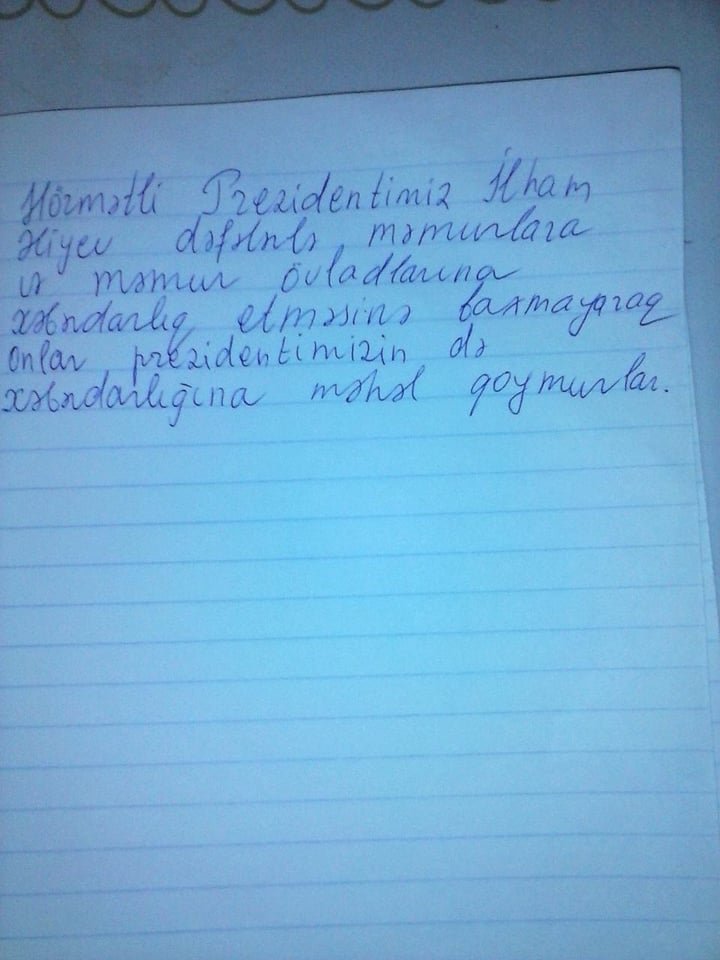 Hörmətli Prezidentimiz İlham
Əliyev dəfələrlə məmurlara
və məmur övladlarına
xəbərdarlıq etməsinə baxmayaraq
onlar prezidentimizin də
xəbərdarlığına məhəl qoymurlar.